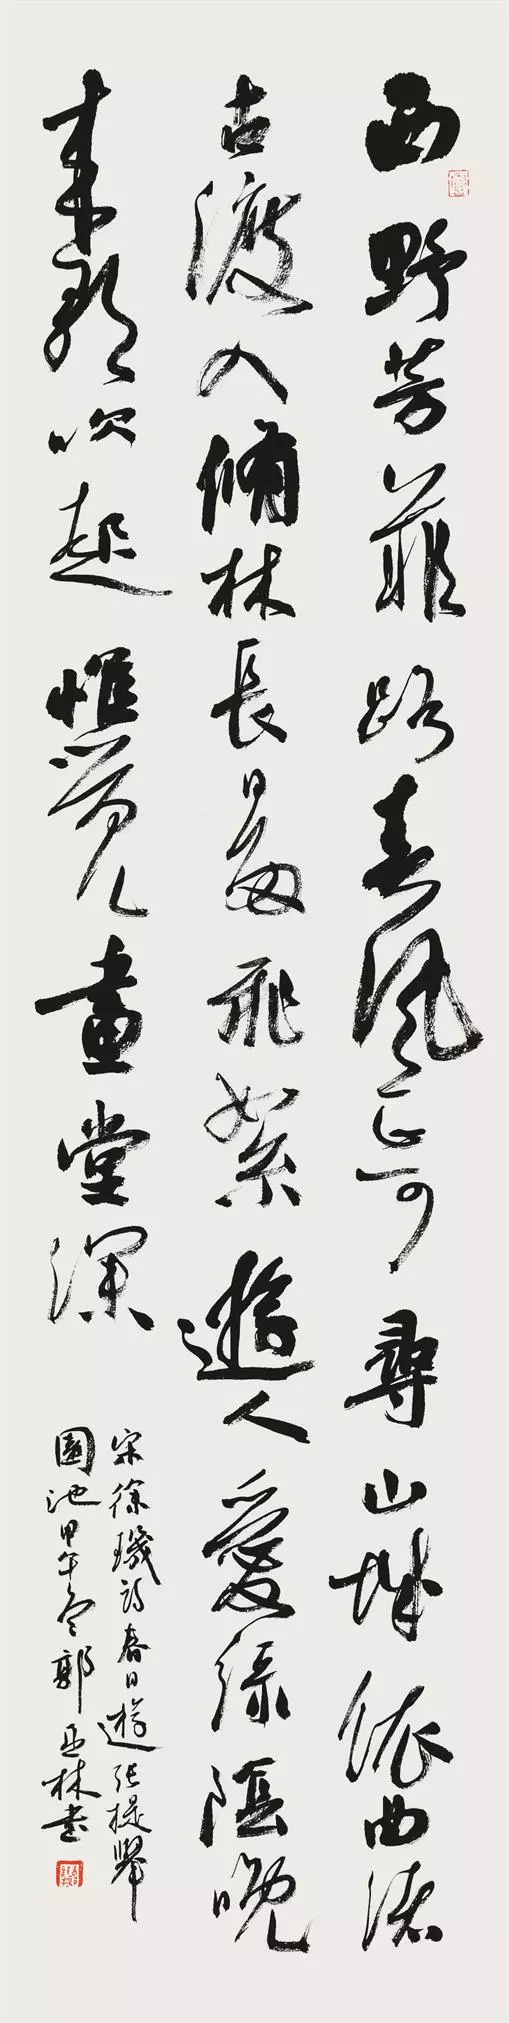 西野芳菲路春風正可尋山城依曲渚
古渡入脩林長日多飛絮遊人愛綠陰晚
来歌吹起惟覺畫堂深
宋徐璣詩春日遊張提舉
園池甲午郭亞林書